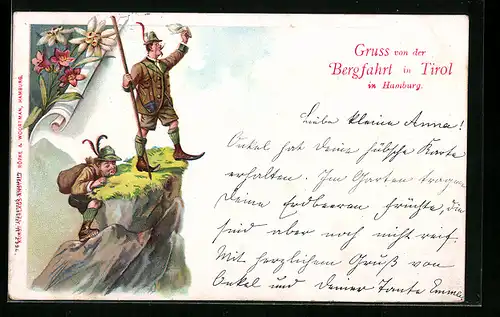 Gruss von der
Bergfahrt in Tirol
in Hamburg.
Liebe kleine Anna!
Onkel hat Deine hübsche Karte
erhalten. Im Garten tragen
Deine Erdbeeren Früchte, die
sind aber noch nicht reif.
Mit herzlichem Gruß von
Onkel und Deiner Tante Emma.
RÖPKE & WOORTMAN, HAMBURG.